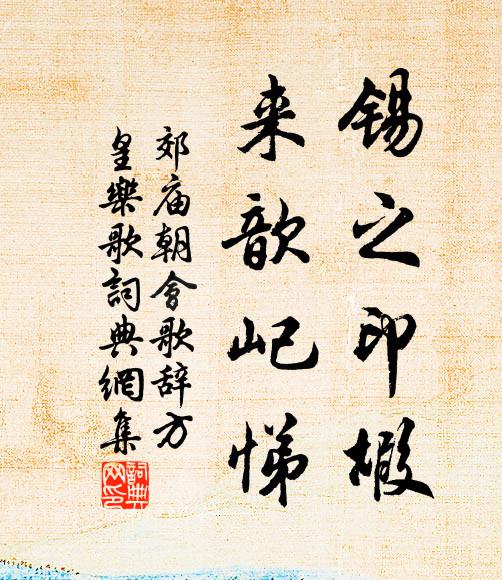 锡之印椵
来歆屺悌
郊庙朝會歌辞方
皇樂歌詞典網集
詞典
网印